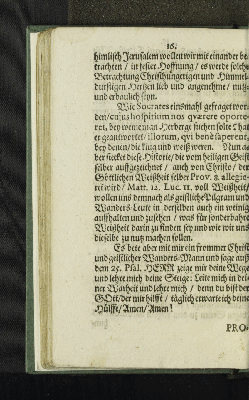 16.
himlisch Jerusalem wollen wir mit einander be-
trachten / in tröster Hoffnung / es werde solche
Betrachtung Christhungerigen und Himmel-
durstigen Hertzen lieb und angenehme / nütz
und erbaulich seyn.
Wie Socrates einsmahl gefraget wor-
den / cujus hospitium nos quærere oporte-
ret, bey wem man Herberge suchen solte / hat
er geantwortet / illorum, qvi benè saperent,
bey denen / die klug und weiß weren. Nun a-
ber stecket diese Historie / die vom heiligen Geist
selber auffgezeichnet / auch von Christo / der
Göttlichen Weißheit selber Prov. 8 allegi-
ret wird / Matt. 12. Luc. 11. voll Weißheit /
wollen uns demnach als geistliche Pilgram und
Wanders-Leute in derselben auch ein wenig
auffhalten und zusehen / was für sonderbahre
Weißheit darin zu finden sey und wie wir uns
dieselbe zu nutz machen sollen.
Es bete aber mit mir ein frommer Christ
und geistlicher Wanders-Mann und sage auß
dem 25. Psal. HERR zeige mir deine Wege
und lehre mich deine Steige: Leite mich in dei-
ner Warheit und lehre mich / denn du bist der
GOtt / der mir hilfft / täglich erwarte ich deine
Hülffe / Amen / Amen!
PRO-